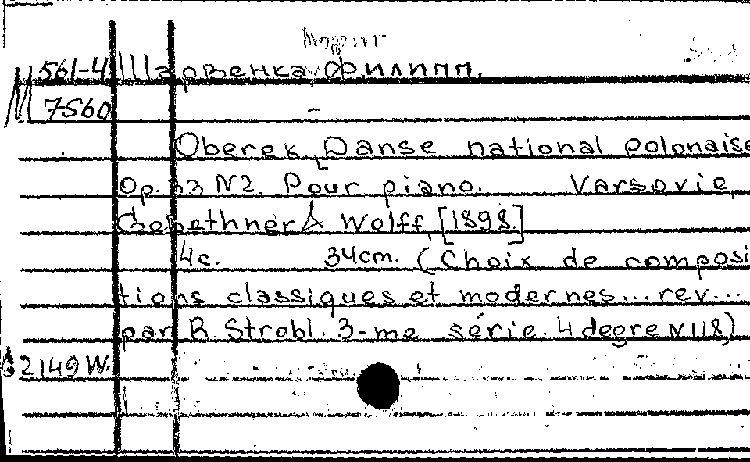 561-4 Шарвенка, Филипп.
M 7560
Oberek, Danse national polonaise
Op. 33 N2. Pour piano. Varsovie,
Gebethner & Wolff, [1898.]
4c. 34cm. (Choix de composi
tions classiques et modernes...rev...
par R. Strobl. 3-me série. 4 degre N 118)
62149W.